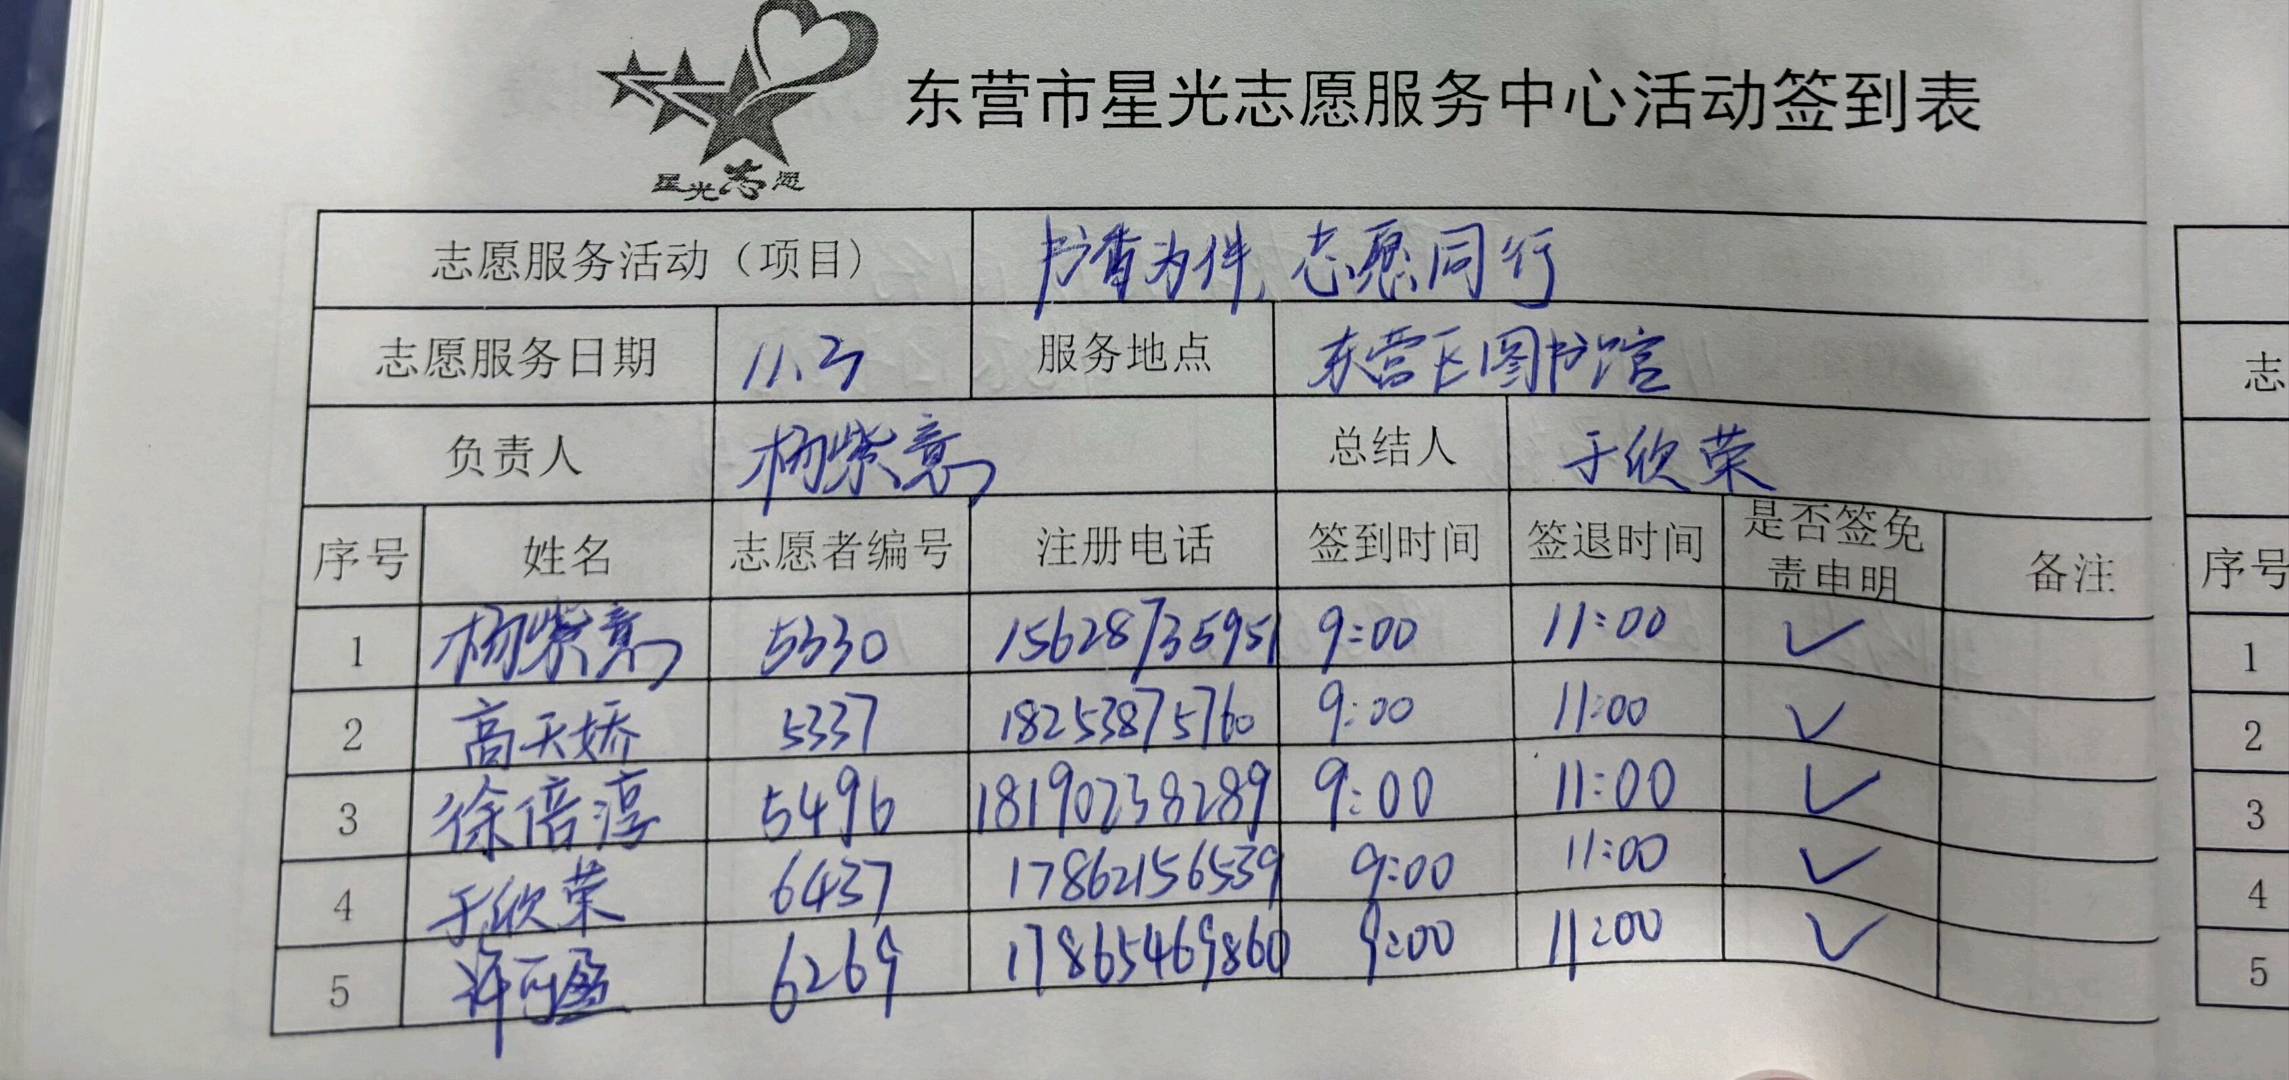 星光志愿
东营市星光志愿服务中心活动签到表
志愿服务活动（项目） 书香为伴，志愿同行
志愿服务日期 11.2 服务地点 东营区图书馆
负责人 杨紫意 总结人 于欣荣
序号 姓名 志愿者编号 注册电话 签到时间 签退时间 是否签免责申明 备注
1 杨紫意 5330 15628735951 9:00 11:00 ✓
2 高天娇 5337 18253875760 9:00 11:00 ✓
3 徐倍淳 5496 18190238289 9:00 11:00 ✓
4 于欣荣 6437 17862156539 9:00 11:00 ✓
5 许可盈 6269 17865469860 9:00 11:00 ✓
志
序号
1
2
3
4
5